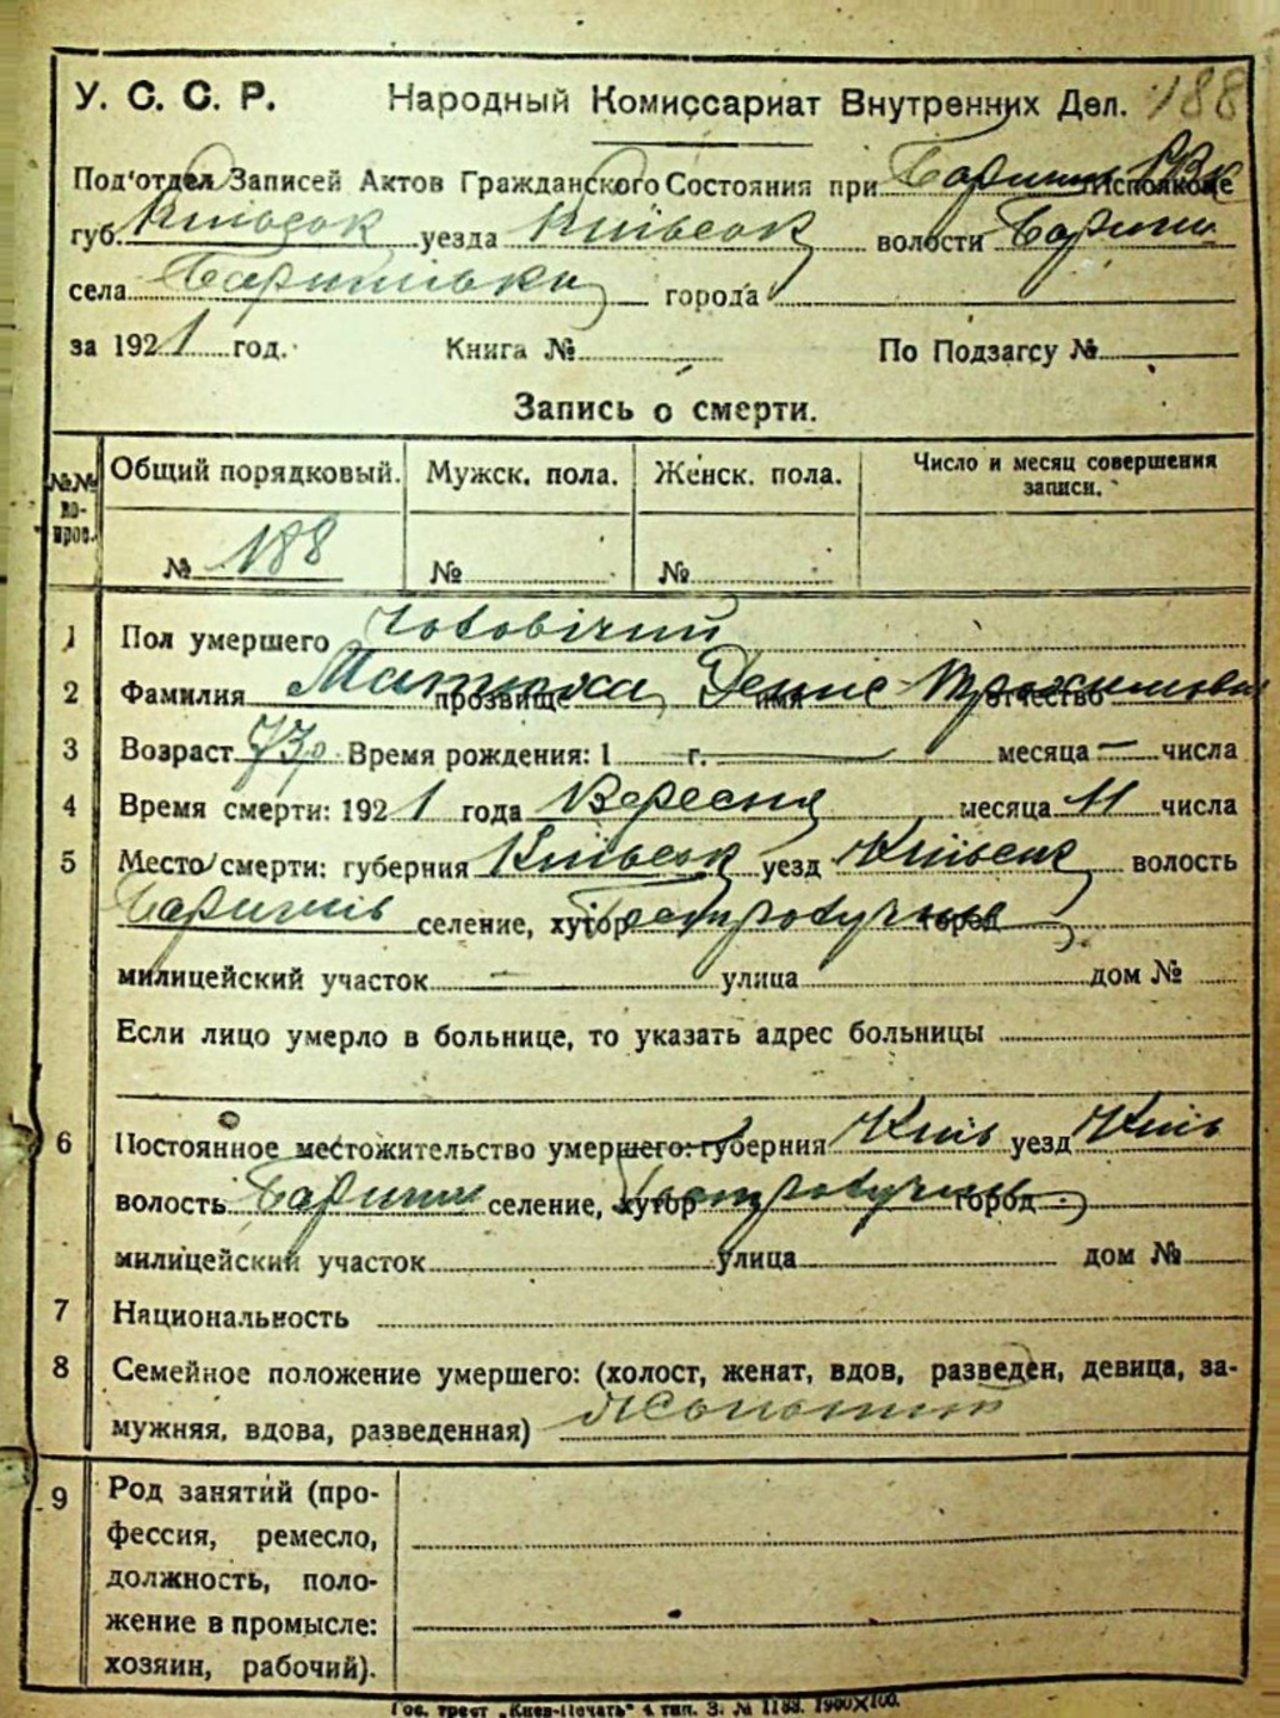 У. С. С. Р. Народный Комиссариат Внутренних Дел. 188
Под'отдел Записей Актов Гражданского Состояния при Исполкоме
губ. уезда Київськ волости
села города
за 1921 год. Книга № По Подзагсу №
Запись о смерти.
№№ вопрос. Общий порядковый. Мужск. пола. Женск. пола. Число и месяц совершения записи.
№ 188 № №
1 Пол умершего Чоловічий
2 Фамилия прозвище имя Денис отчество Трохимович
3 Возраст 73р. Время рождения: 1 г. — месяца — числа
4 Время смерти: 1921 года Вересня месяца 11 числа
5 Место смерти: губерния Київськ уезд Київськ волость
селение, хутор город
милицейский участок — улица дом №
Если лицо умерло в больнице, то указать адрес больницы
6 Постоянное местожительство умершего: губерния Київ уезд Київ
волость селение, хутор город
милицейский участок улица дом №
7 Национальность
8 Семейное положение умершего: (холост, женат, вдов, разведен, девица, за-
мужняя, вдова, разведенная)
9 Род занятий (про-
фессия, ремесло,
должность, поло-
жение в промысле:
хозяин, рабочий).
Гос. трест „Киев-Печать" 4 тип. З. № 1183. 1900×100.